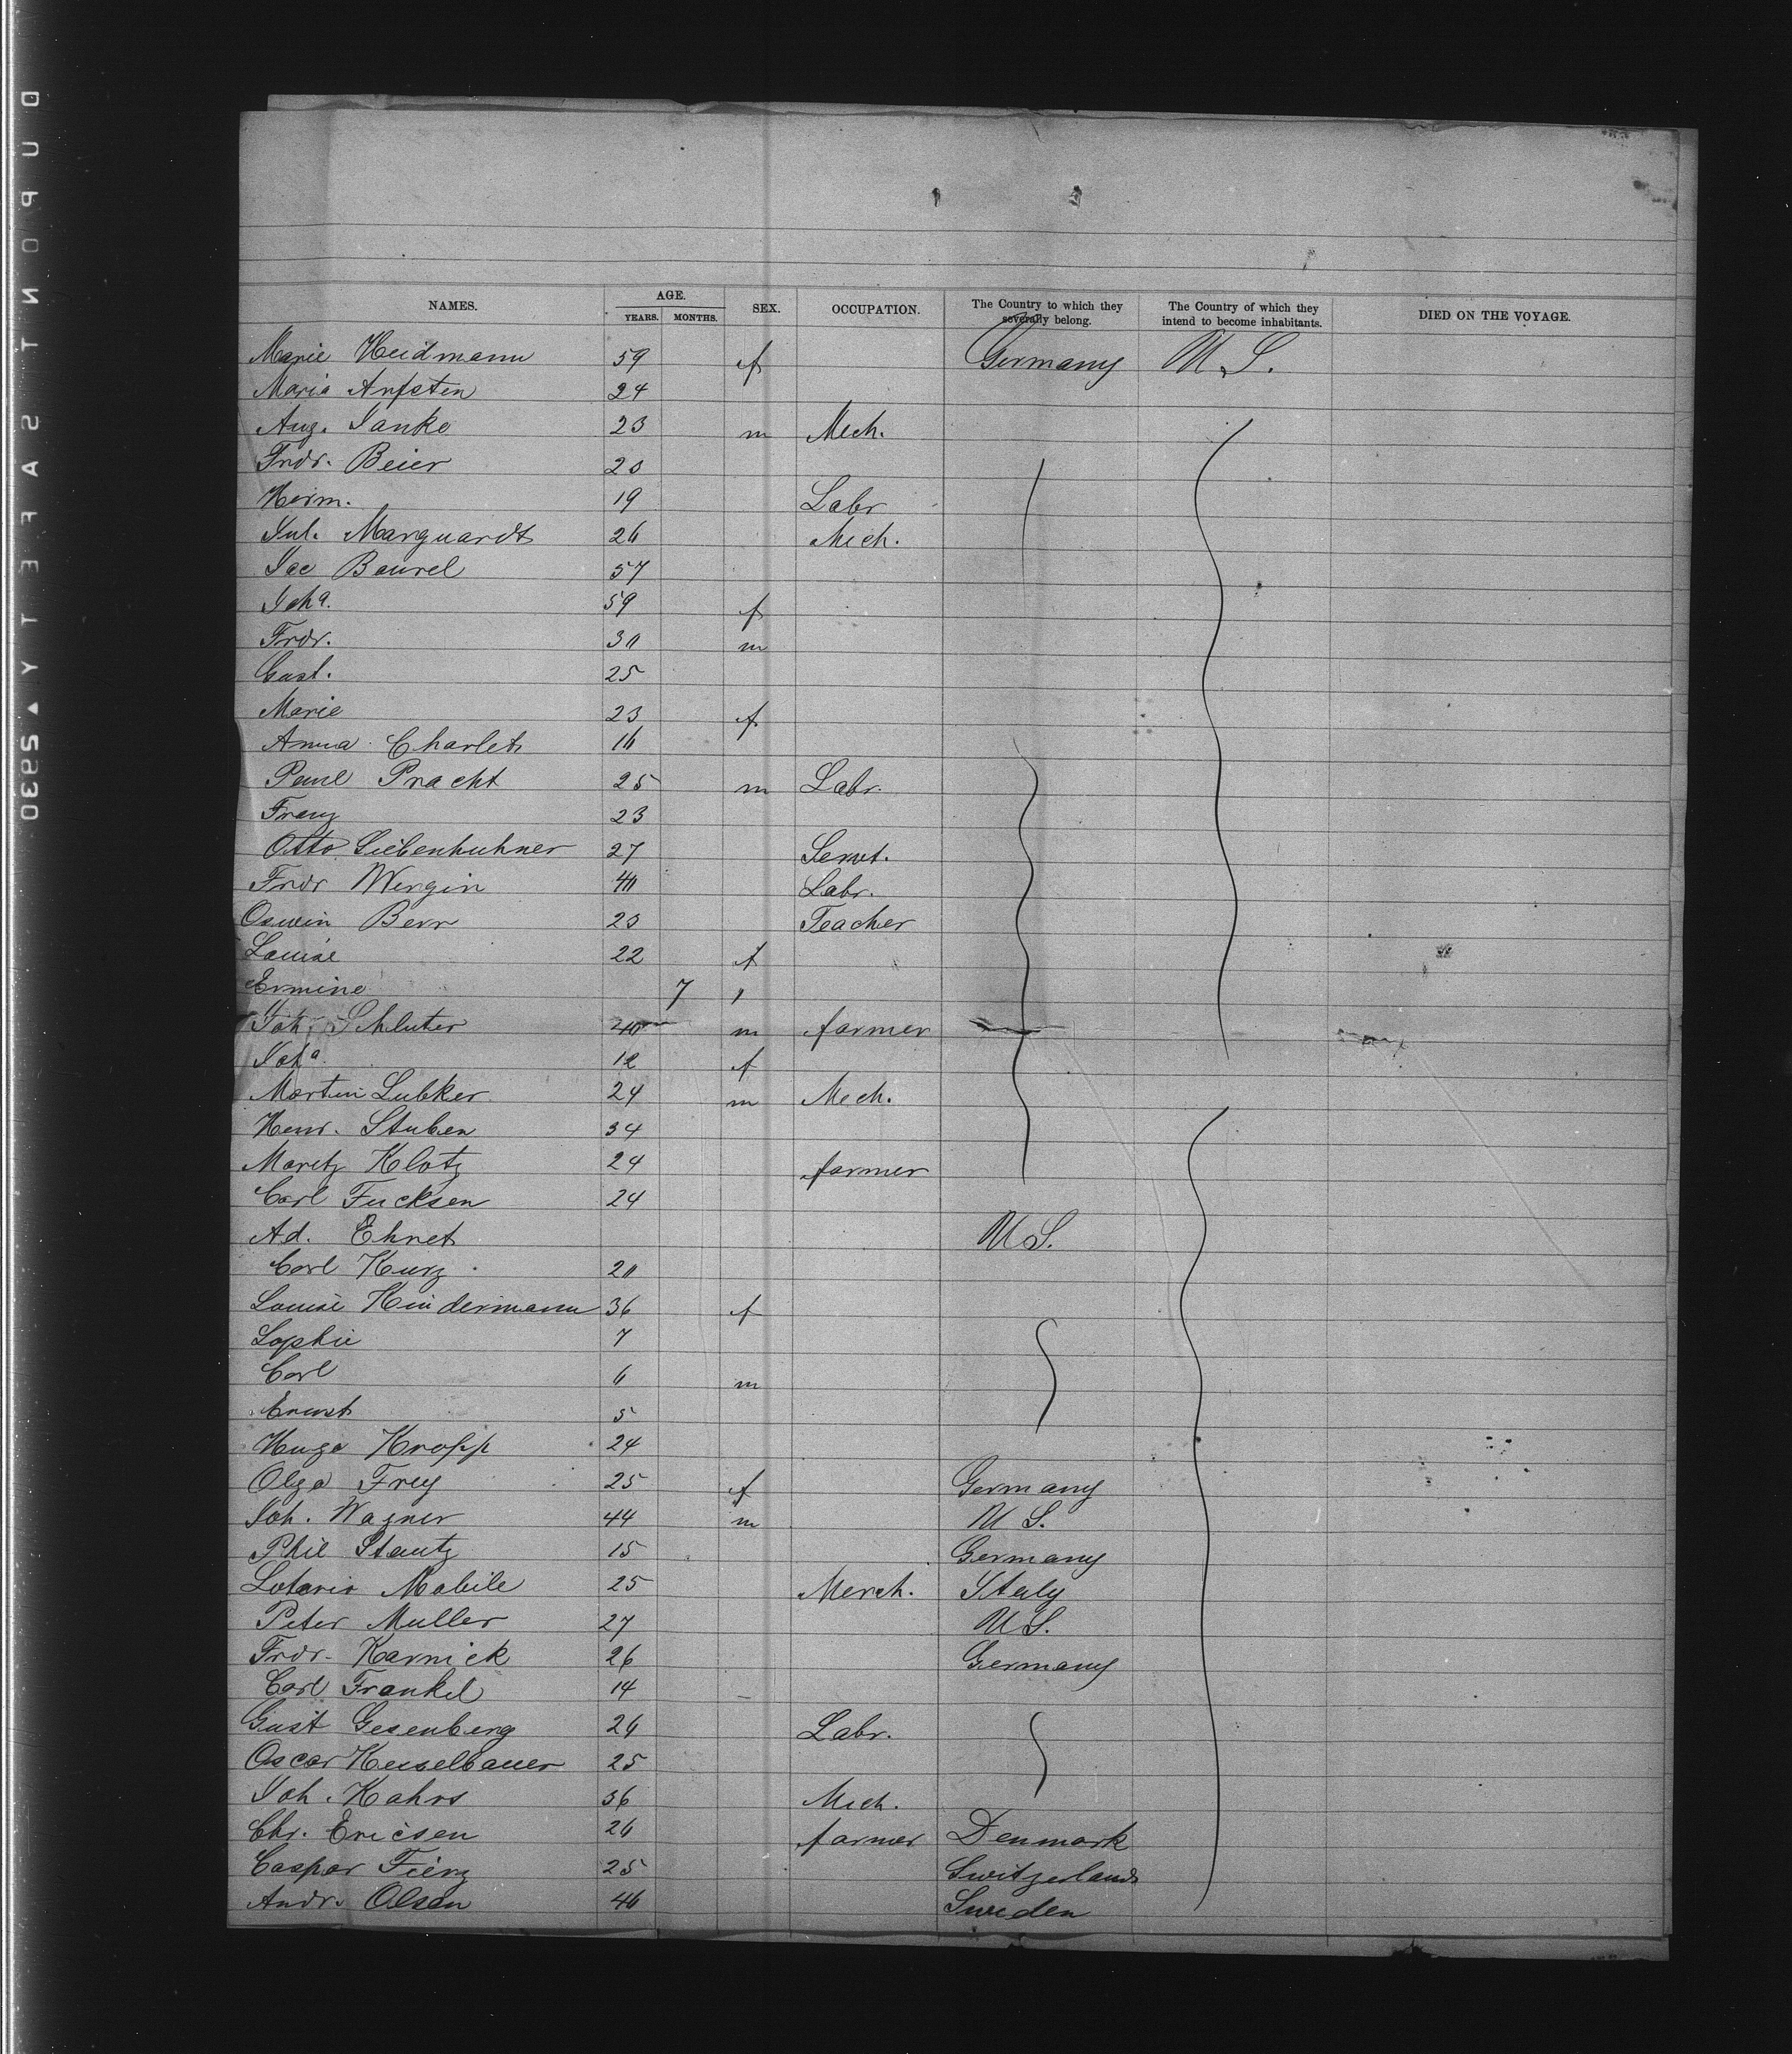 DUPONT SAFETY ▲ 25930
NAMES. AGE. YEARS. MONTHS. SEX. OCCUPATION. The Country to which they severally belong. The Country of which they intend to become inhabitants. DIED ON THE VOYAGE.
Marie Heidmann 59 f Germany U.S.
Maria Anfsten 24
Aug. Janke 23 m Mech.
Frdr. Beier 20
Herm. 19 Labr
Jul. Marquardt 26 Mech.
Jac Baurel 57
Joha. 59 f
Frdr. 30
m
Gust. 25
Marie 23 f
Anna Charlet 16
Paul Pracht 25 m Labr.
Franz 23
Otto Siebenhuhner 27 Servt.
Frdr Wergin 40 Labr.
Oswin Berr 23 Teacher
Louise 22 f
Ermine 7
Joh. Schluter 40 m farmer
Joha 12 f
Martin Lubker 24 m Mech.
Henr. Stuben 34
Moritz Klotz 24 farmer
Carl Fucksen 24
Ad. Ehret U.S.
Carl Kurz 20
Louise Hindermann 36 f
Sophie 7
Carl 6 m
Ernst 5
Hugo Kropp 24
Olga Frey 25 f Germany
Joh. Wagner 44 m U S.
Phil Stautz 15 Germany
Lotario Mabile 25 Merch. Italy
Peter Muller 27 U.S.
Frdr. Karnick 26 Germany
Carl Frankel 14
Gust Gesenberg 26 Labr.
Oscar Heiselbauer 25
Joh. Kahrs 36 Mech.
Chr. Ericsen 26 farmer Denmark
Caspar Fierz 25 Switzerland
Andr. Olsen 46 Sweden